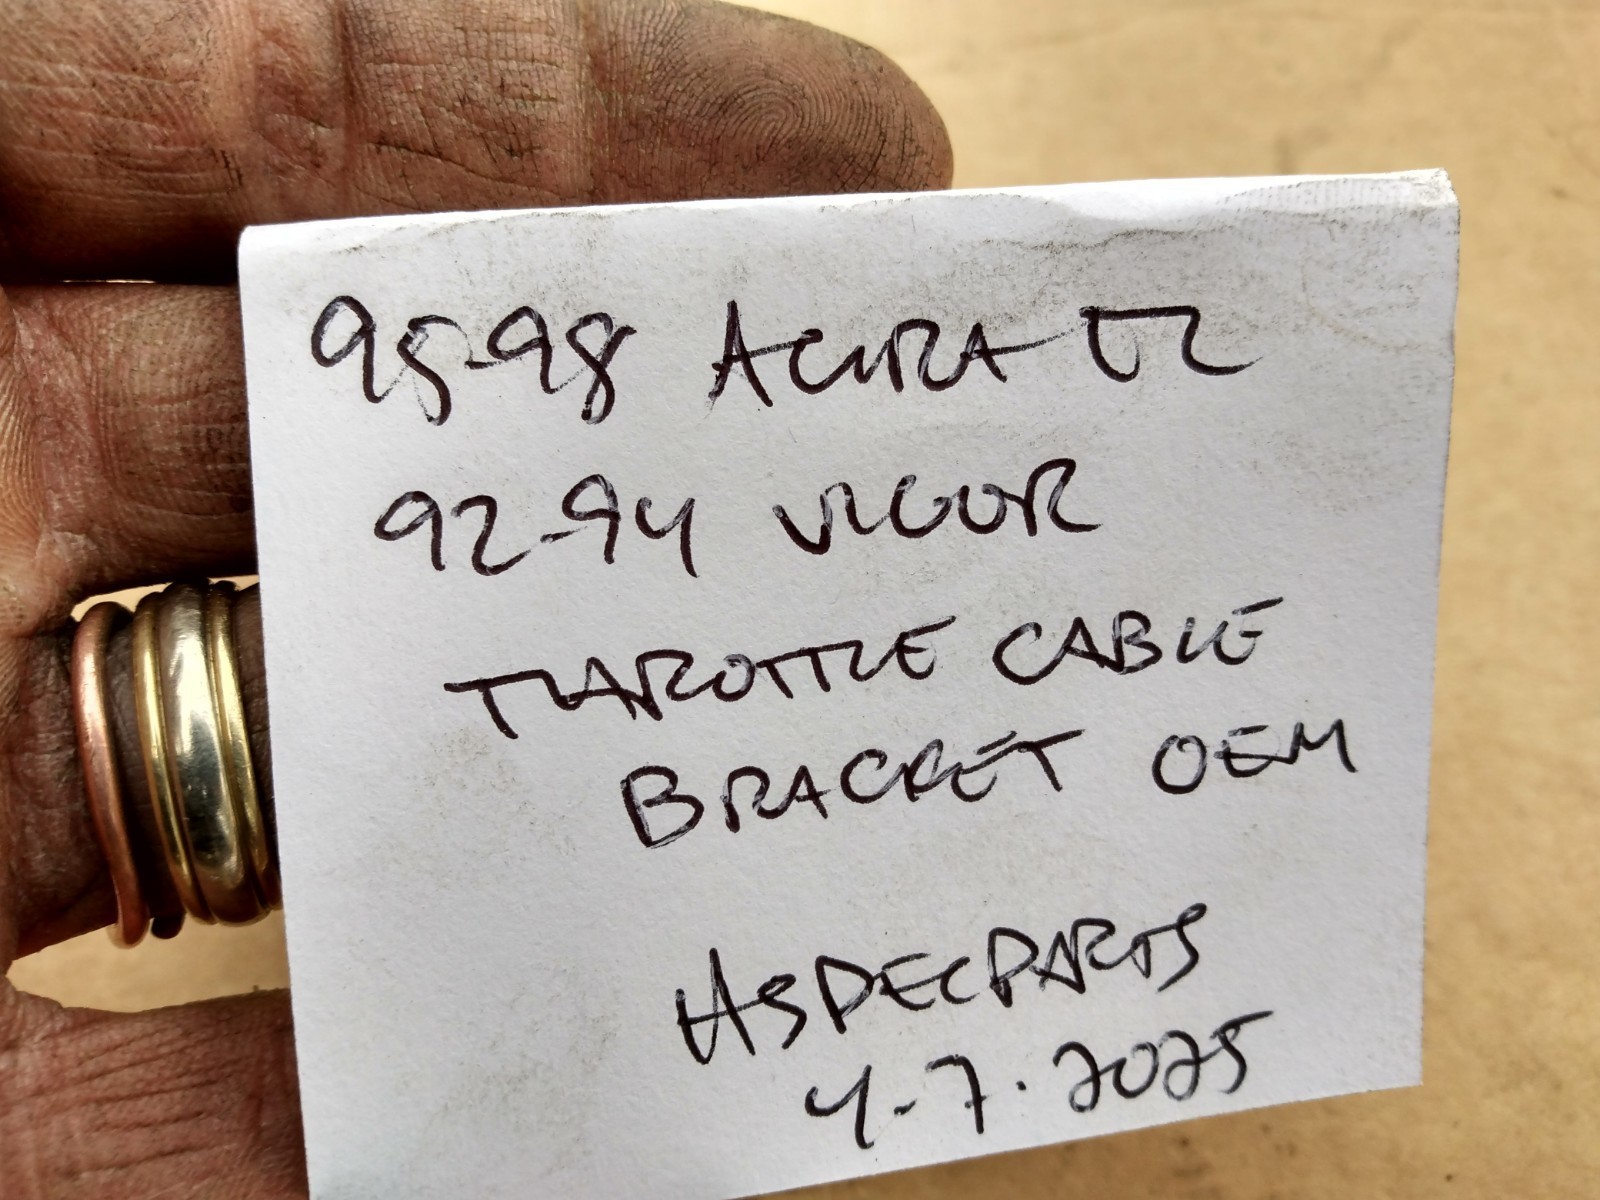 95-98 ACURA TL
92-94 VIGOR
THROTTLE CABLE
BRACKET OEM
HSPECPARTS
4-7-2025